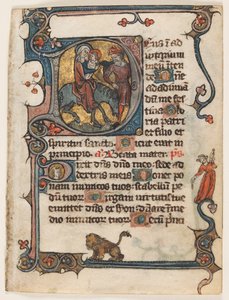 eus i ad
iutorium
meum iten
de Dne
ad adiuua
dum me fes
tina Glo
ria patri
et filio et
spiritui sancto. Sicut erat in
principio. a Beata mater. ps
Dixit dns dno meo: sede a
dextris meis Donec po
nam inimicos tuos: scabellu pe
dum tuor. Uirgam uirtutis tue
emittet dns ex syon: dnare i me
dio inimicor tuor Tecu prin